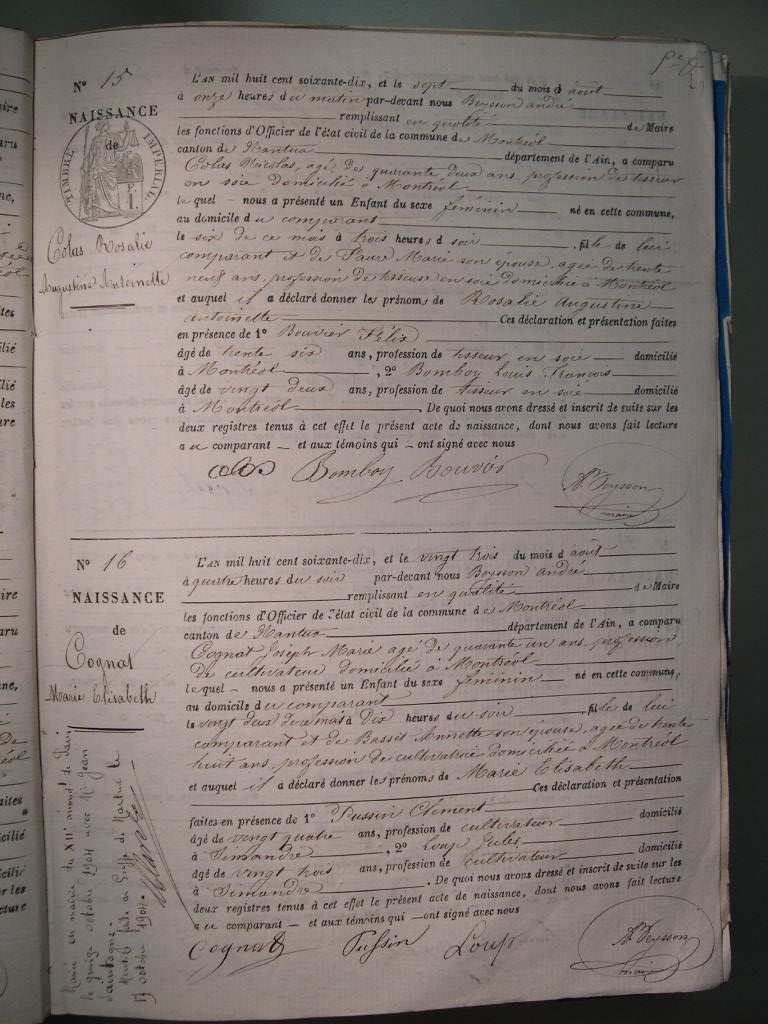 N° 15
NAISSANCE
de
TIMBRE IMPERIAL
Colas Rosalie
Augustine Antoinette
L'AN mil huit cent soixante-dix, et le sept du mois d août
à onze heures du matin par-devant nous Beysson andré
remplissant en qualité de Maire
les fonctions d'Officier de l'état civil de la commune de Montréal
canton de Nantua département de l'Ain, a comparu
Colas Nicolas, agé de quarante deux ans, profession de tisseur
en soie domicilié à Montréol
le quel - nous a présenté un Enfant du sexe féminin né en cette commune,
au domicile du comparant
le six de ce mois à trois heures d soir , fille de lui
comparant et de Marie son épouse, agée de trente
neuf ans, profession de tisseuse en soie domiciliée à Montréol
et auquel il a déclaré donner les prénoms de Rosalie Augustine
antoinette Ces déclaration et présentation faites
en présence de 1° Bouvier Félix
âgé de trente six ans, profession de tisseur en soie domicilié
à Montréol , 2° Bomboy Louis François
âgé de vingt deux ans, profession de tisseur en soie domicilié
à Montréol . De quoi nous avons dressé et inscrit de suite sur les
deux registres tenus à cet effet le présent acte de naissance, dont nous avons fait lecture
a u comparant - et aux témoins qui - ont signé avec nous
Colas Bomboy Bouvier A. Beysson
maire
N° 16
NAISSANCE
de
Cognat
Marie Elisabeth
L'AN mil huit cent soixante-dix, et le vingt trois du mois d août
à quatre heures du soir par-devant nous Beysson andré
remplissant en qualité de Maire
les fonctions d'Officier de l'état civil de la commune de Montréol
canton de Nantua département de l'Ain, a comparu
Cognat Joseph Marie agé de quarante un ans, profession
de cultivateur domicilié à Montréol
le quel - nous a présenté un Enfant du sexe féminin né en cette commune,
au domicile du comparant
le vingt deux de ce mois à dix heures du soir , fille de lui
comparant et de Annette son épouse, agée de trente
huit ans, profession de cultivatrice domiciliée à Montréol
et auquel il a déclaré donner les prénoms de Marie Elisabeth
Ces déclaration et présentation
faites en présence de 1° Pussin Clément domicilié
âgé de vingt quatre ans, profession de cultivateur
à Simandre , 2° Loup Jules domicilié
âgé de vingt trois ans, profession de cultivateur
à Simandre . De quoi nous avons dressé et inscrit de suite sur les
deux registres tenus à cet effet le présent acte de naissance, dont nous avons fait lecture
a u comparant - et aux témoins qui - ont signé avec nous
Cognat Pussin Loup A. Beysson
maire
Marié en mairie du XIIe arrondt de Paris
le quinze octobre 1904 avec Mr Jean
Mention faite au Greffe de Nantua le
17 octobre 1904